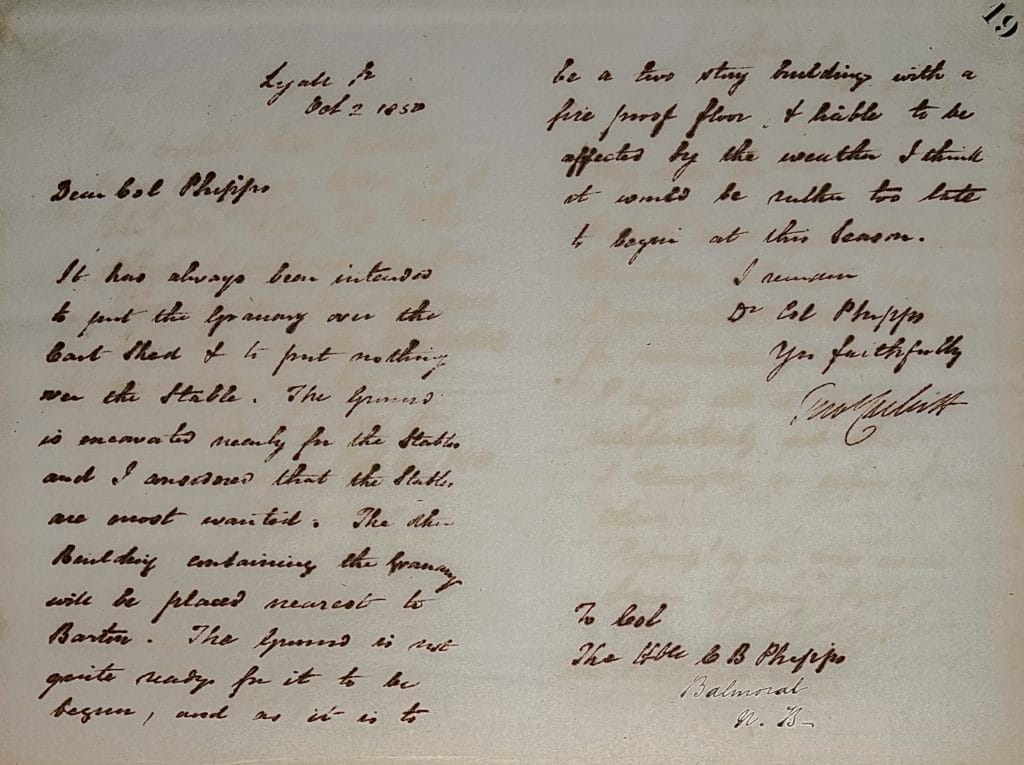 19
Lyall St
Oct 2 1850
Dear Col Phipps
It has always been intended
to put the Granary over the
Cart Shed & to put nothing
over the Stable. The Ground
is excavated nearly for the Stables
and I considered that the Stables
are most wanted. The other
Building containing the Granary
will be placed nearest to
Barton. The Ground is not
quite ready for it to be
begun, and as it is to
be a two story building with a
fire proof floor, & liable to be
affected by the weather I think
it would be rather too late
to begin at this Season.
I remain
Dr Col Phipps
Yrs faithfully
Thos Cubitt
To Col
The Hble C B Phipps
Balmoral
N. B—